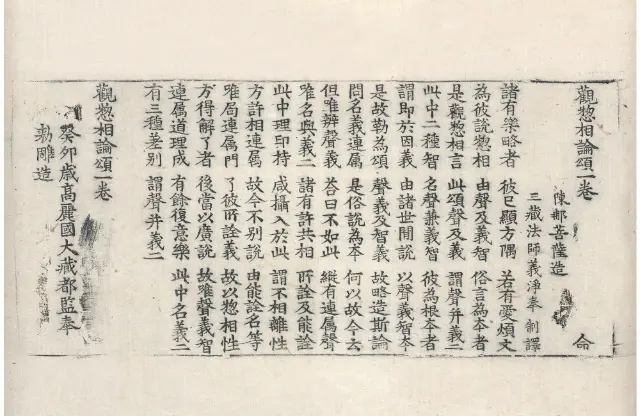 觀惣相論頌一卷 命
陳那菩薩造
三藏法師義淨奉 制譯
諸有樂略者 彼已顯方隅 若有愛煩文
為彼說惣相 由聲及義智 俗言為本者
是觀惣相言 此頌聲及義 謂聲并義二
此中二種智 名聲兼義智 彼為根本者
謂即於因義 由諸世間說 以聲義智本
是故勒為頌 聲義及智義 故略造斯論
問名義連属 是俗說為本 何以故今云
但唯辦聲義 荅曰不如此 縱有連属聲
唯名與義二 諸有許共相 所詮及能詮
此中理印持 咸攝入於此 謂不相離性
方許相連属 故今不別說 由能詮名等
唯局連属門 了彼所詮義 故以惣相性
方得解了者 後當以廣說 故唯聲義智
連属道理成 有餘復意樂 此中名義二
有三種差別 謂聲并義二
觀惣相論頌一卷
癸卯歲高麗國大藏都監奉
勑雕造